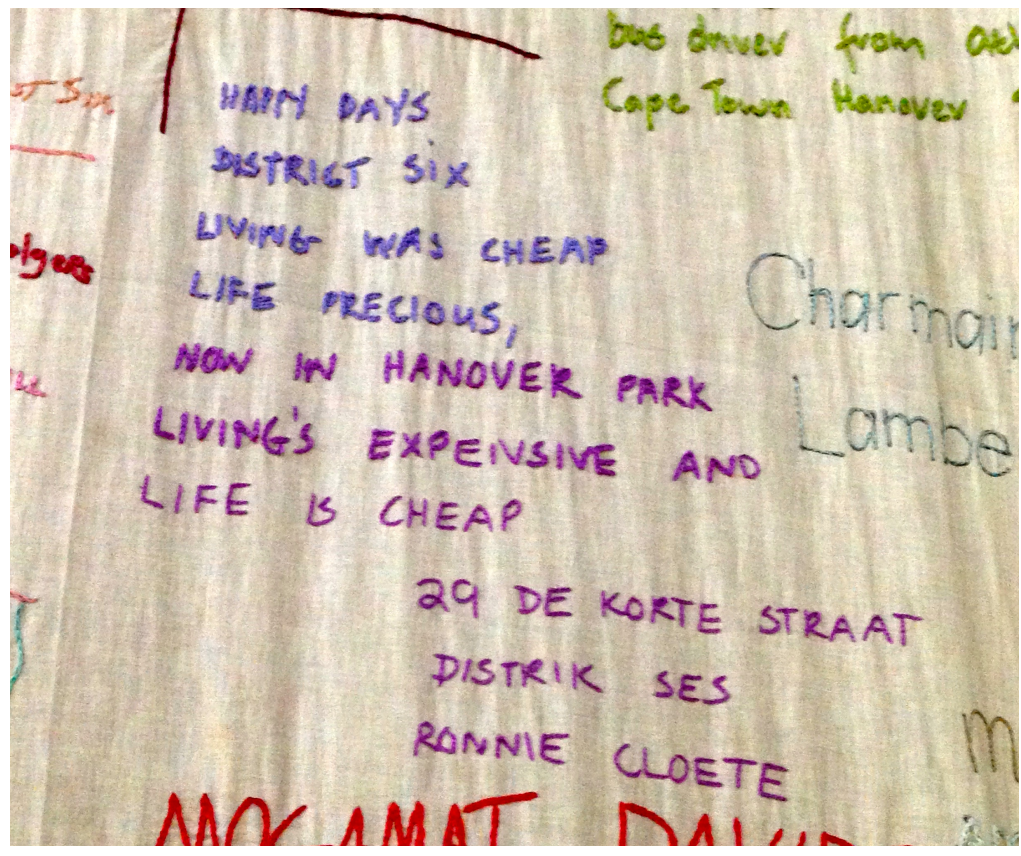 bus driver from
Cape Town Hanover
HAPPY DAYS
DISTRICT SIX
LIVING WAS CHEAP
LIFE PRECIOUS,
NOW IN HANOVER PARK
LIVING'S EXPENSIVE AND
LIFE IS CHEAP
29 DE KORTE STRAAT
DISTRIK SES
RONNIE CLOETE
Charmain
Lambe
MOGAMAT DAVID